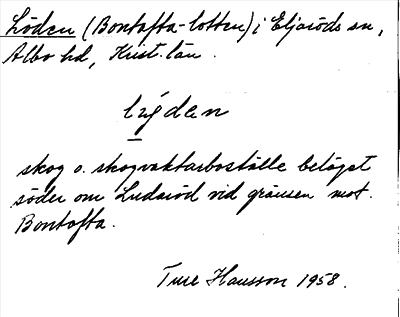 Löden (Bontofta-lotten) i Eljaröds sn,
Albo hd, Krist. län.
lýdan
skog o. skogvaktarboställe beläget
söder om Ludaröd vid gränsen mot
Bontofta.
Ture Hansson 1958.